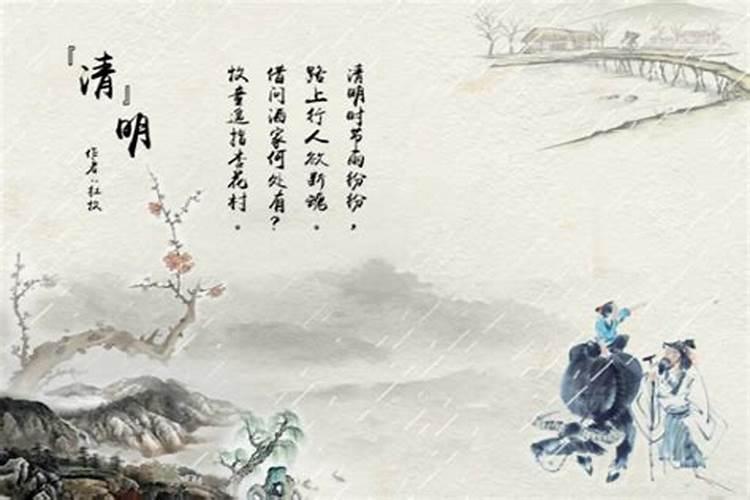 『清明』
作者：杜牧
清明时节雨纷纷，
路上行人欲断魂。
借问酒家何处有？
牧童遥指杏花村。